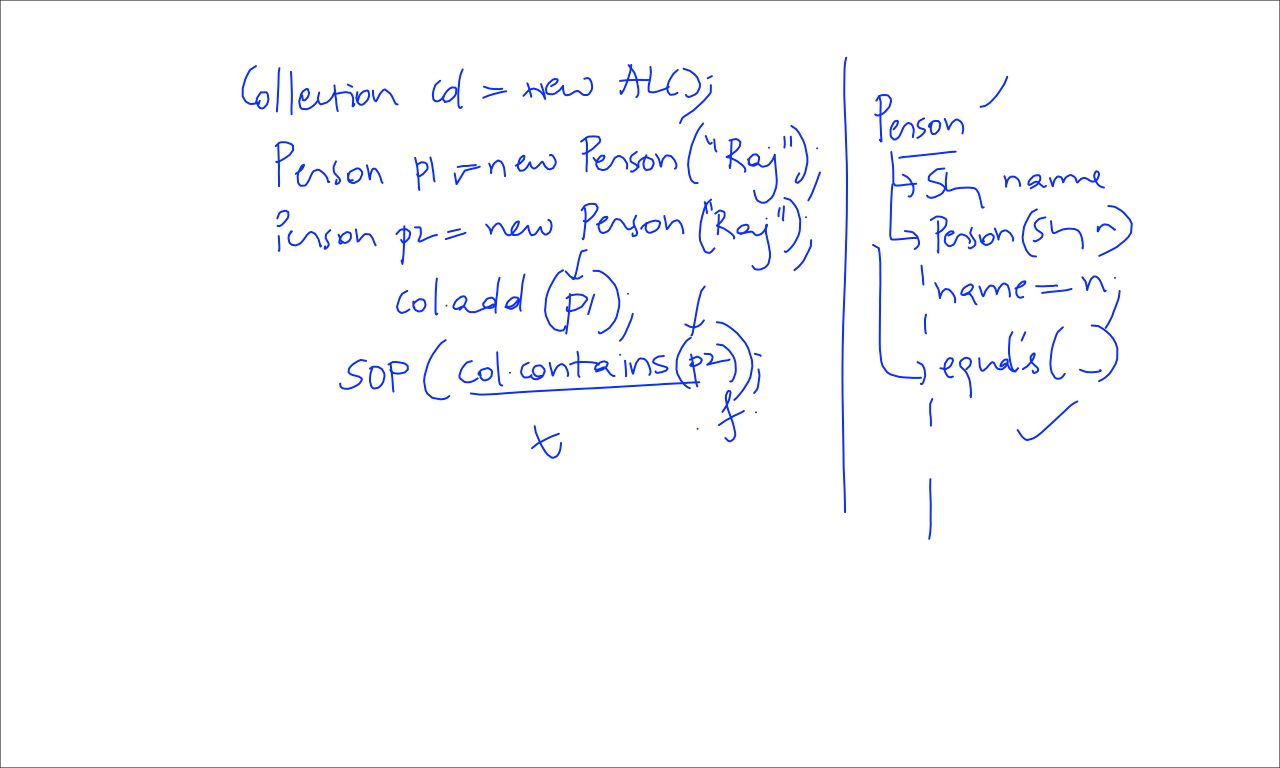 Collection col = new AL();
Person p1 = new Person("Raj");
Person p2 = new Person("Raj");
col.add(p1);
SOP(col.contains(p2));
t
f
Person
name
Person(
name = n;
equals(_)